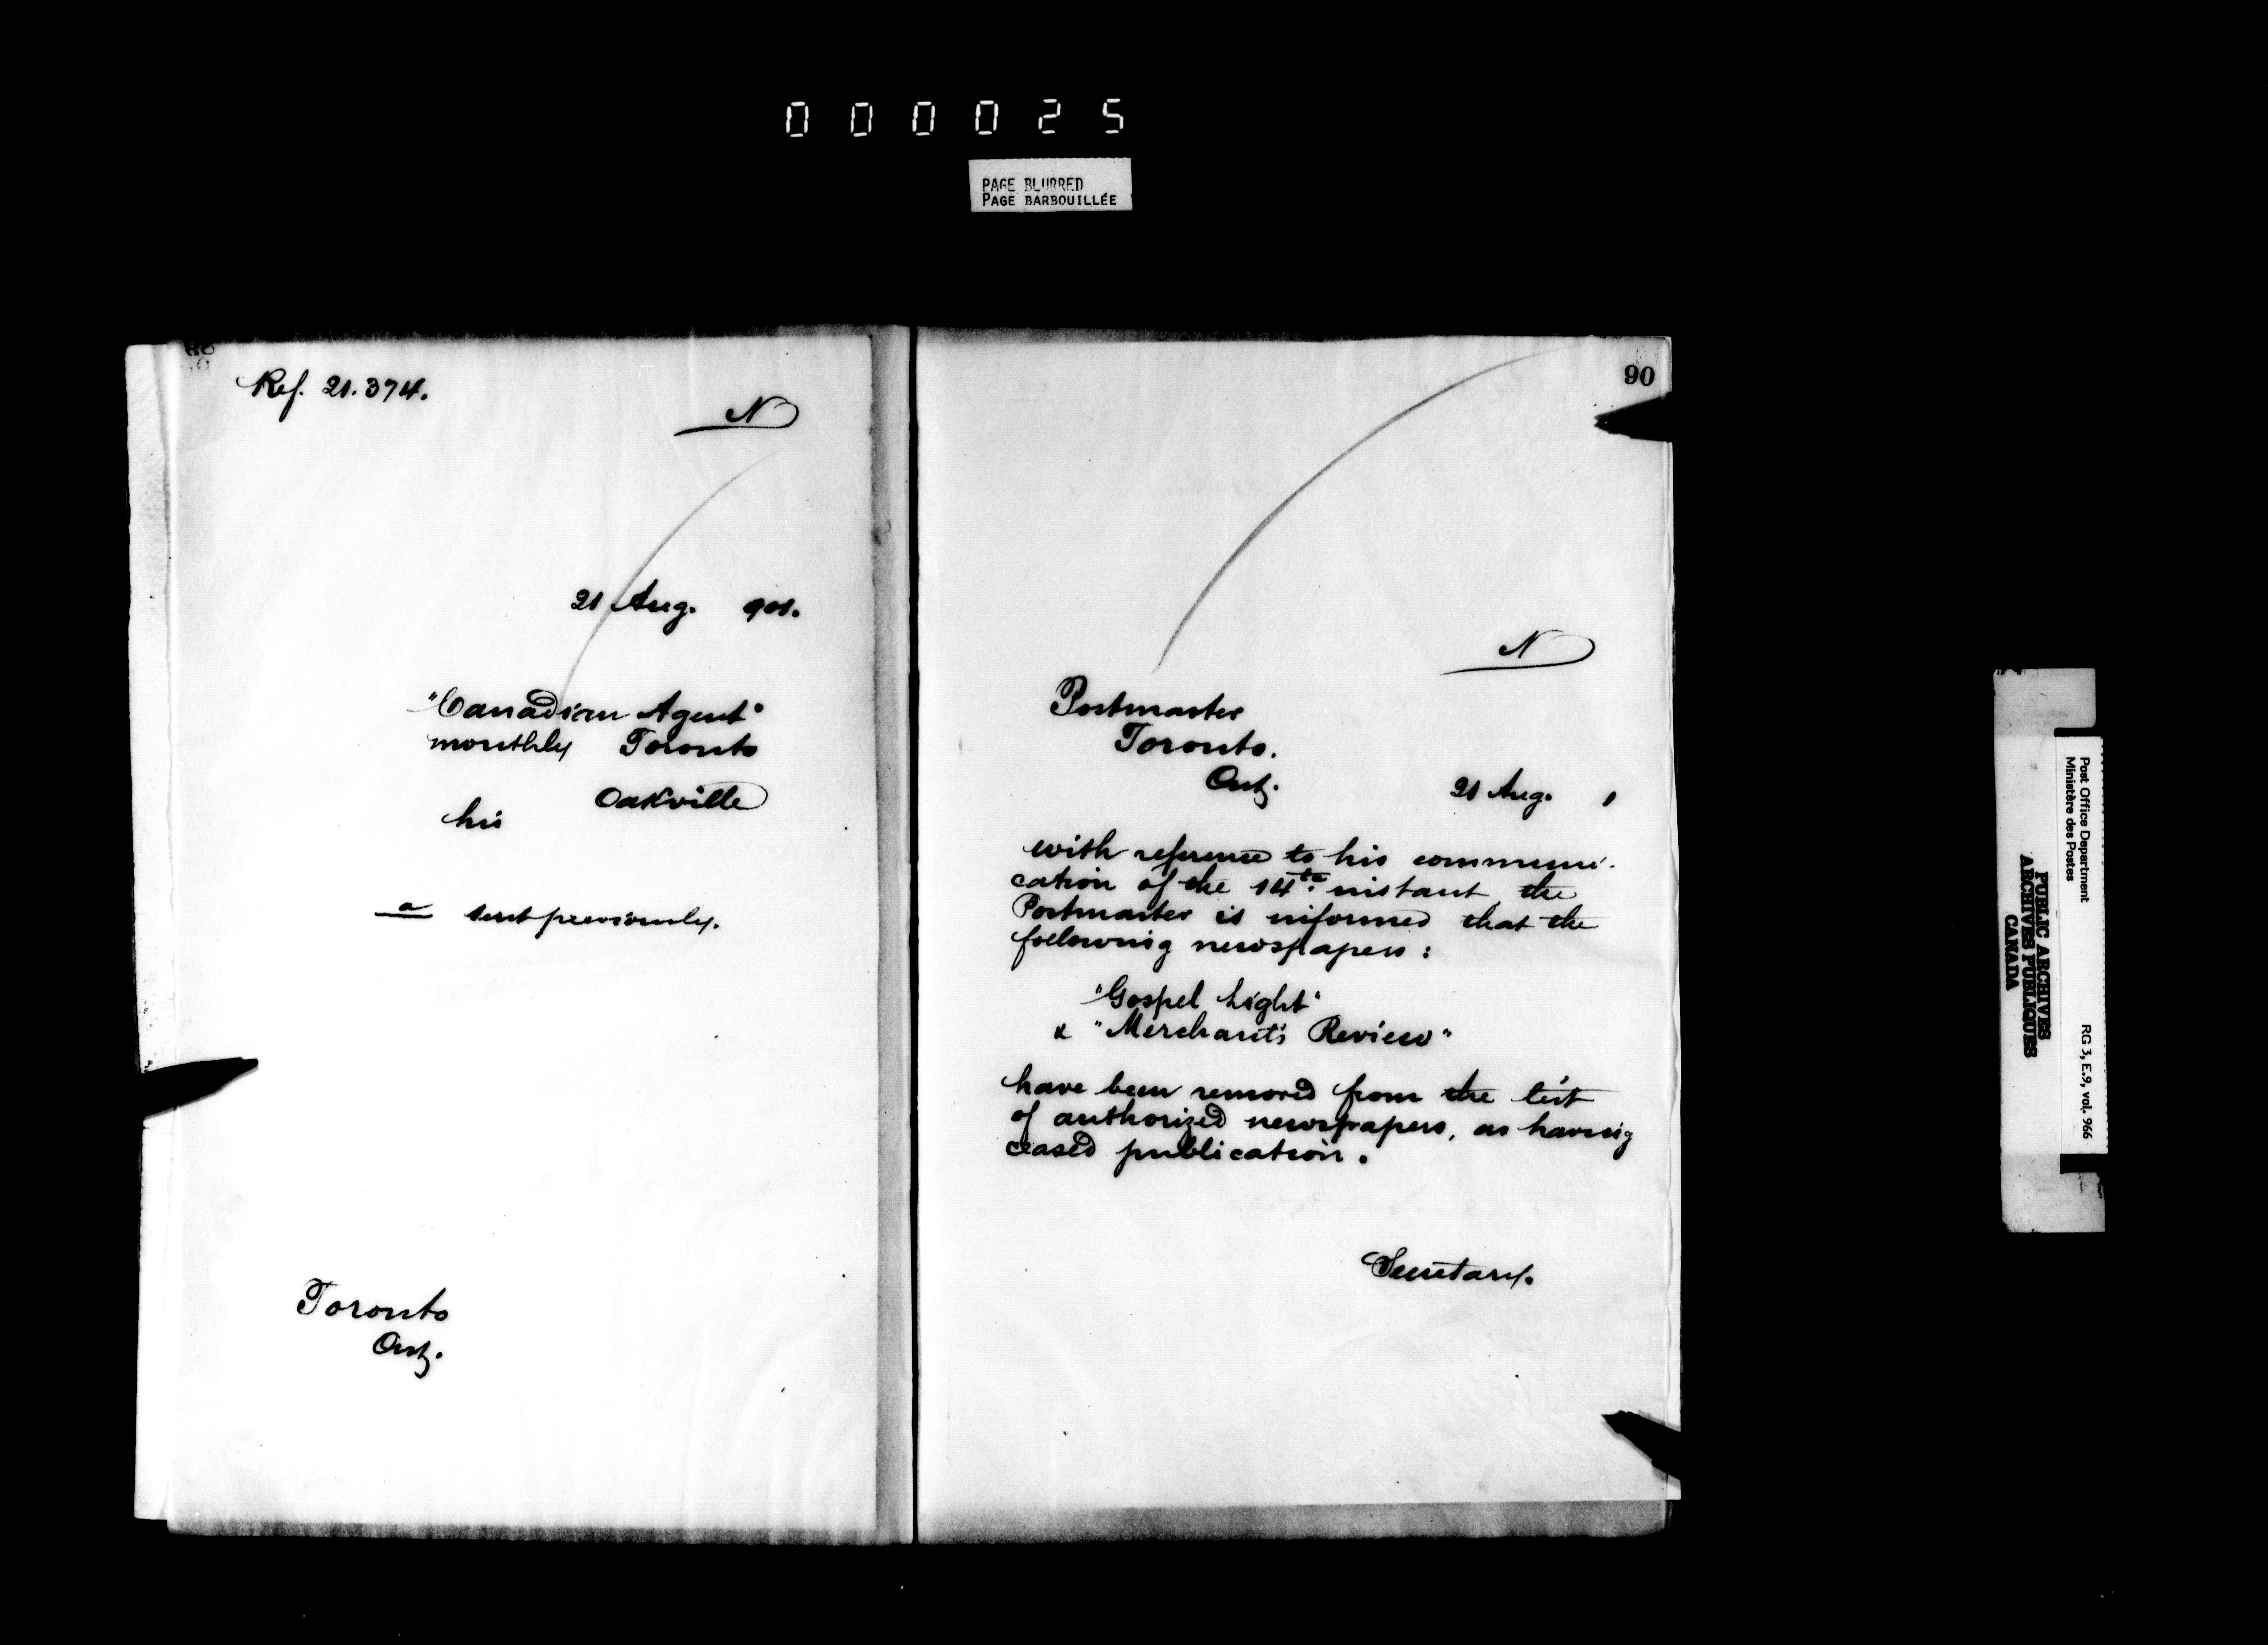 000025
PAGE BLURRED
PAGE BARBOUILLÉE
Ref. 21.374.
N
21 Aug. 901.
"Canadian Agent"
monthly Toronto
Oakville
his
a sent previously.
Toronto
Ont.
90
N
Postmaster
Toronto.
Ont.
21 Aug. 1
with reference to his communi-
cation of the 14th. instant the
Postmaster is informed that the
following newspapers:
"Gospel Light"
& "Merchant's Review"
have been removed from the list
of authorized newspapers, as having
ceased publication.
Secretary.
Post Office Department
Ministère des Postes
RG 3, E.9, vol. 966
PUBLIC ARCHIVES
ARCHIVES PUBLIQUES
CANADA